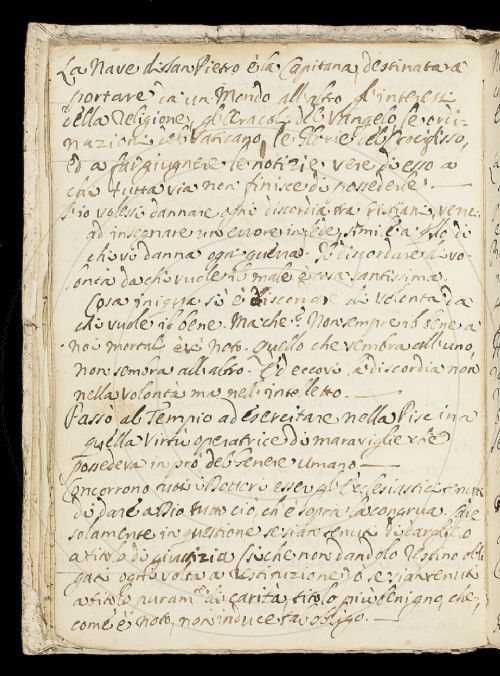 La Nave di San Pietro è la Capitana destinata a
portare da un Mondo all'altro gl'interessi
della Religione, gl'Oracoli del Vangelo, le ordi-
nazioni del Vaticano, le Glorie del Crocifisso,
ed a far giugnere le notizie vere di esso a
chi tutta via non finisce di possederle.
S'io volessi dannare ogni discordia tra Cristiani, verre
ad insegnare un errore in fede, simile a di
chi vi danna ogni guerra. Il discordare di vo-
lontà da chi vuole il male è cosa santissima.
Cosa iniqua si è discordare di volontà da
chi vuole il bene. Ma che? Non sempre il bene a
noi mortali è noto. Quello che sembra all'uno,
non sembra all'altro. Ed eccovi la discordia non
nella volontà ma nell'intelletto.
Passò al Tempio ad esercitare nella Piscina
quella Virtù operatrice di maraviglie che
possedeva in prò del Genere Umano.
Concorrono tutti i Dottori esser gl'Ecclesiastici tenuti
di dare a Dio tutto ciò, ch'è sopra la congrua. Che
solamente in questione se sian tenuti di darglilo
a titolo di giustizia (si che non dandolo restino obli
gati ogni volta a restituzione) o se sian tenuti
a titolo di carità, titolo più benigno, che,
come è noto, non induce tal obligo.